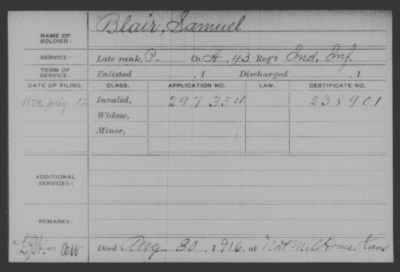 Blair, Samuel
NAME OF SOLDIER:
SERVICE: Late rank, P. Co. A, 43 Reg't Ind. Inf.
TERM OF SERVICE: Enlisted , 1 Discharged , 1
DATE OF FILING. CLASS. APPLICATION NO. LAW. CERTIFICATE NO.
1879, July Invalid, 297 35 238901
Widow,
Minor,
ADDITIONAL SERVICES:
REMARKS:
Died Aug 30, 1916, at Nat Mil Home Kans